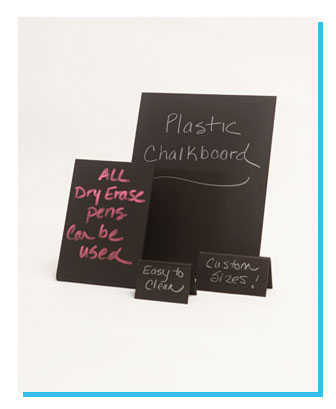 Plastic
Chalkboard
ALL
Dry Erase
pens
Can be
used
Easy to
Clean
Custom
Sizes!